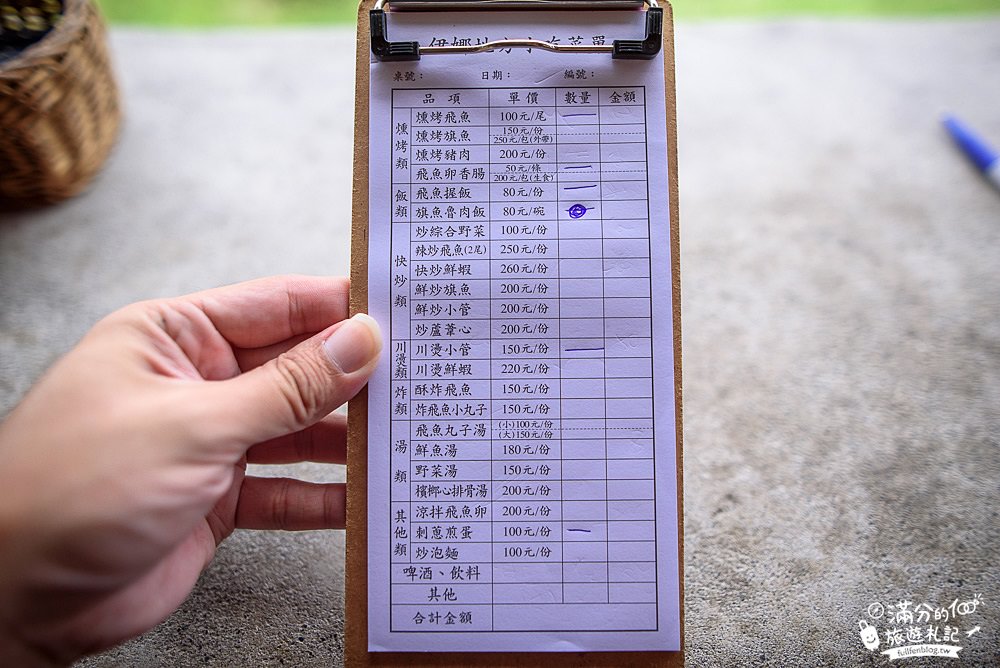 伊娜地方小吃菜單
桌號： 日期： 編號：
品項 單價 數量 金額
燻烤類
燻烤飛魚 100元/尾 一
燻烤旗魚 150元/份 250元/包(外帶)
燻烤豬肉 200元/份
飛魚卵香腸 50元/條 一 200元/包(生食)
飯類
飛魚握飯 80元/份 一
旗魚魯肉飯 80元/碗
快炒類
炒綜合野菜 100元/份
辣炒飛魚(2尾) 250元/份
快炒鮮蝦 260元/份
鮮炒旗魚 200元/份
鮮炒小管 200元/份
炒蘆葦心 200元/份
川燙類
川燙小管 150元/份 一
川燙鮮蝦 220元/份
炸類
酥炸飛魚 150元/份
炸飛魚小丸子 150元/份
湯類
飛魚丸子湯 (小)100元/份 (大)150元/份
鮮魚湯 180元/份
野菜湯 150元/份
檳榔心排骨湯 200元/份
其他類
涼拌飛魚卵 200元/份
刺蔥煎蛋 100元/份 一
炒泡麵 100元/份
啤酒、飲料
其他
合計金額
滿分的100
旅遊札記
fullfenblog.tw